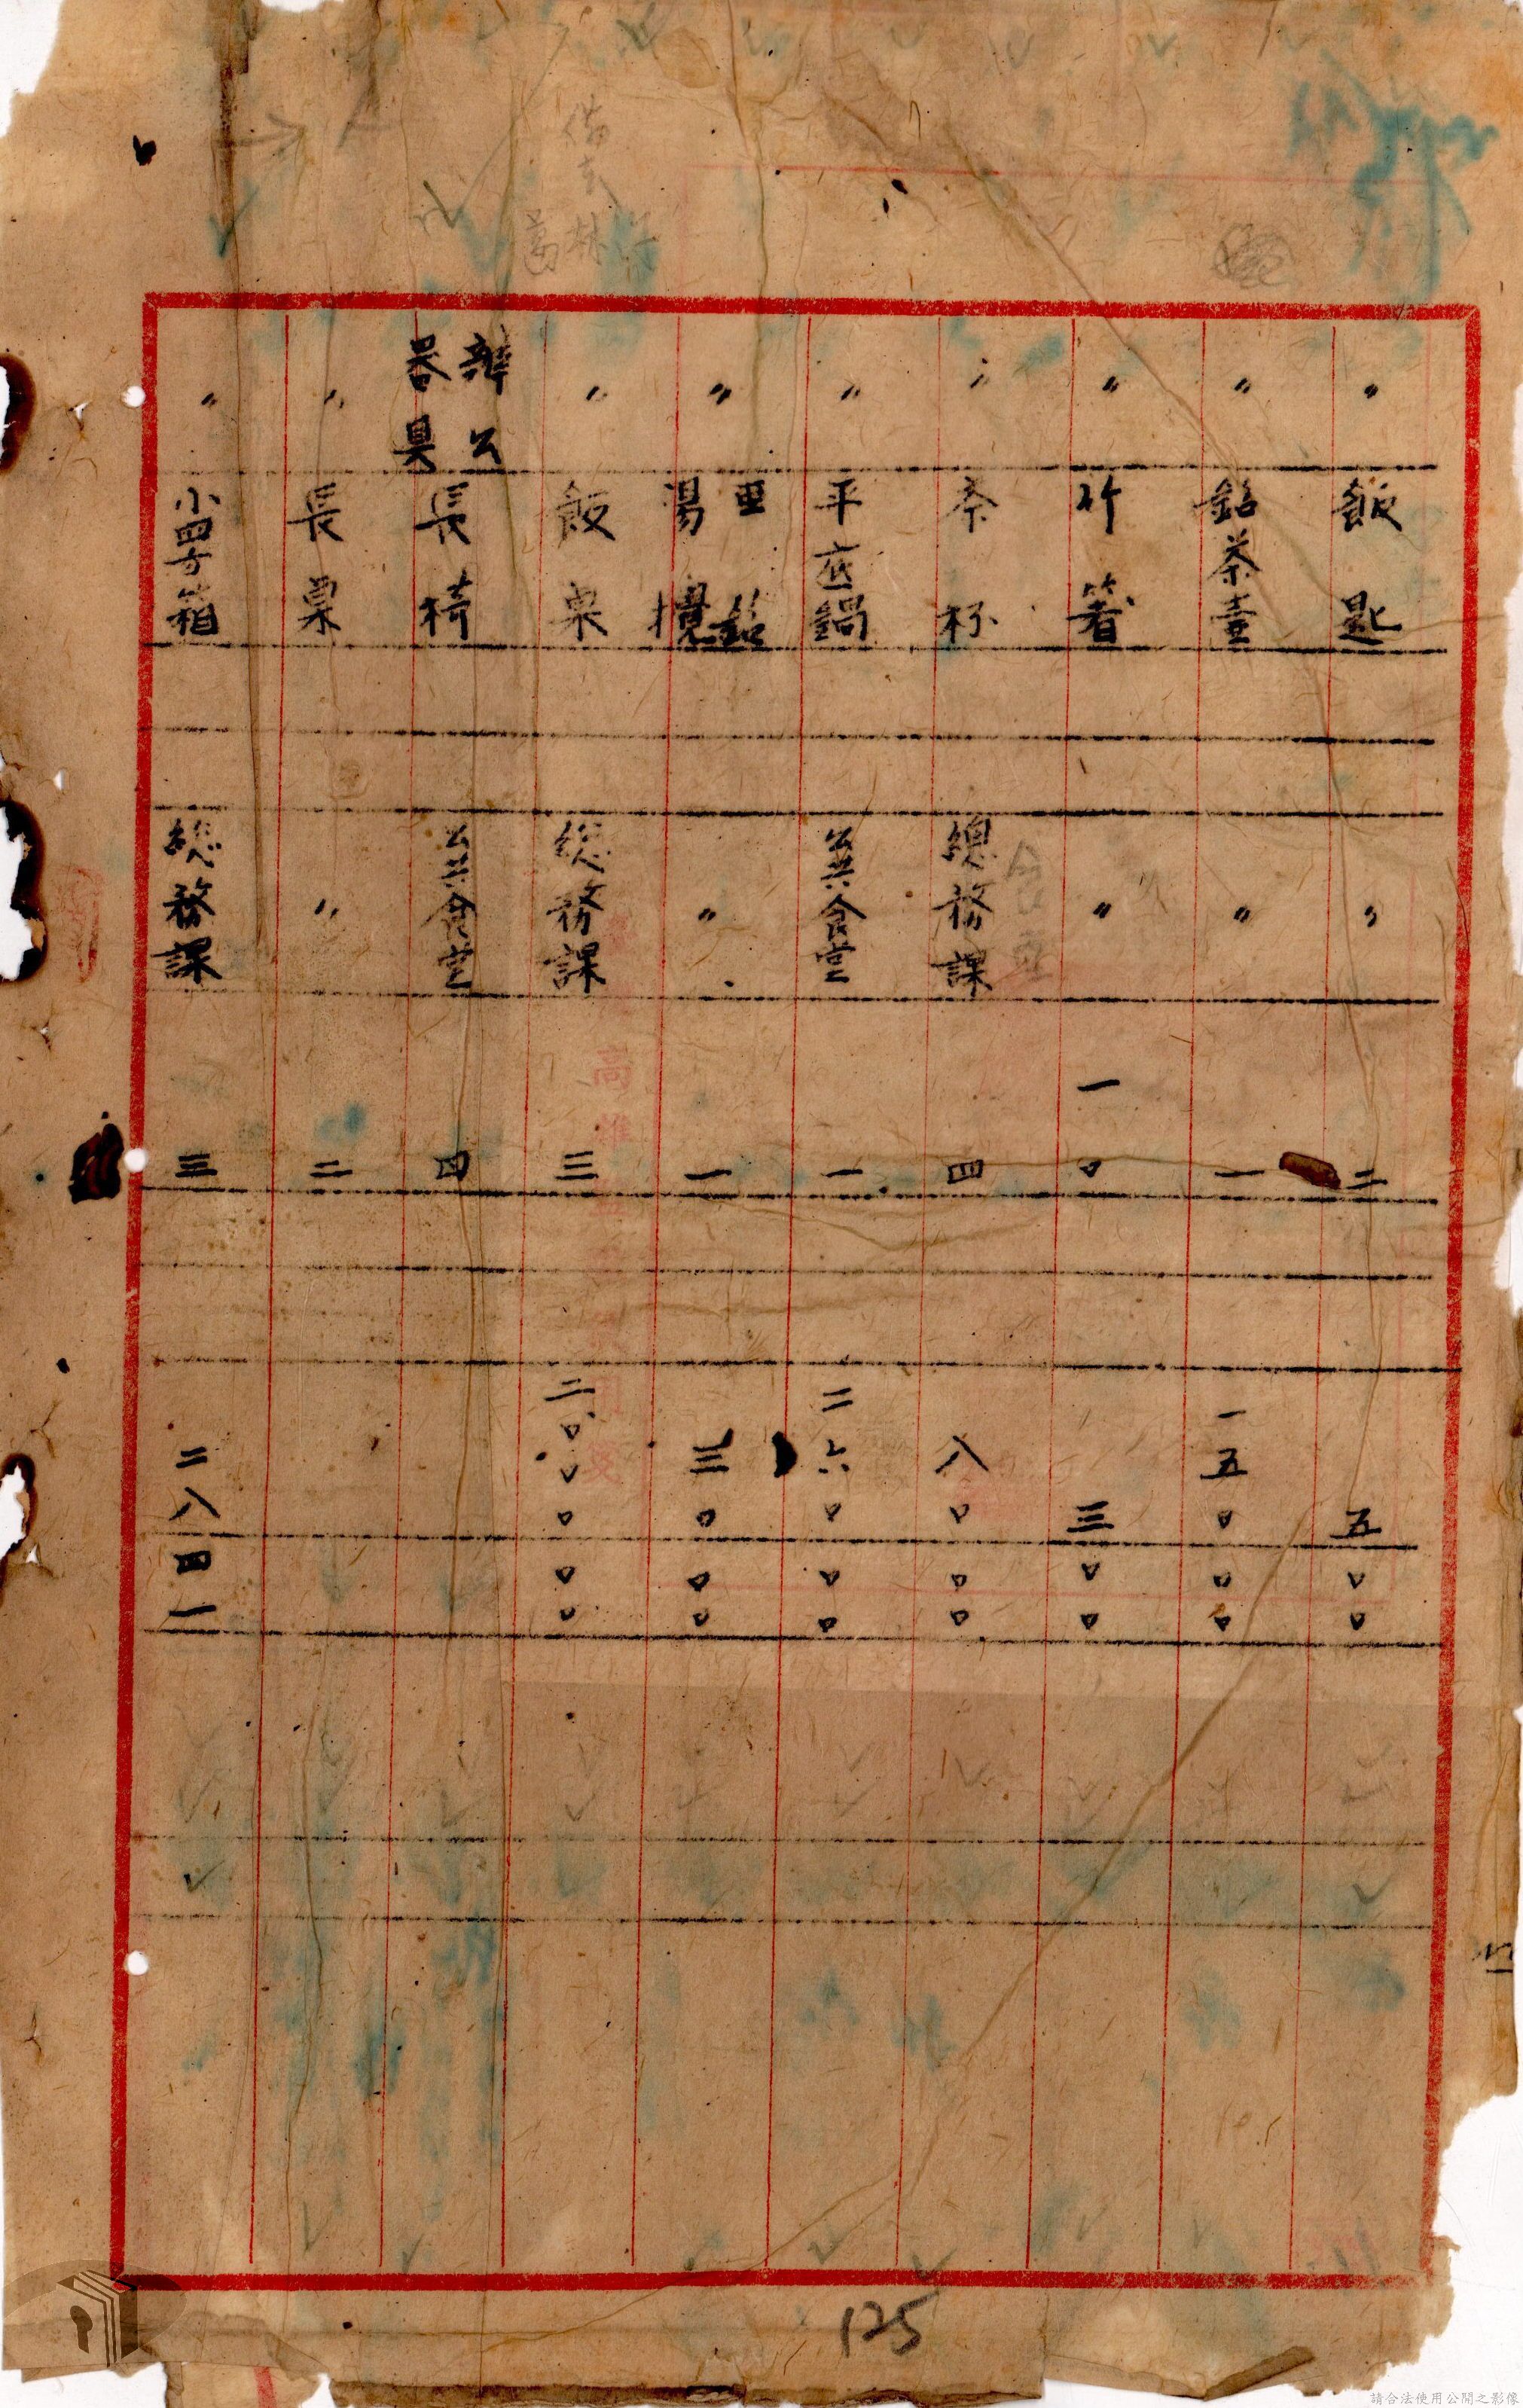 〃 飯匙 〃 二 五〇〇
〃 鋁茶壺 〃 一 一五〇〇〇
〃 竹箸 〃 一〇 三〇〇
〃 茶杯 總務課 四 八〇〇〇
〃 平底鍋 公共食堂 一 二六〇〇〇
〃 亜鉛湯攪 〃 一 三〇〇〇
〃 飯桌 総務課 三 二〇〇〇〇〇
辦公器具 長椅 公共食堂 四
〃 長桌 〃 二
〃 小四方箱 総務課 三 二八四一
125
請合法使用公開之影像